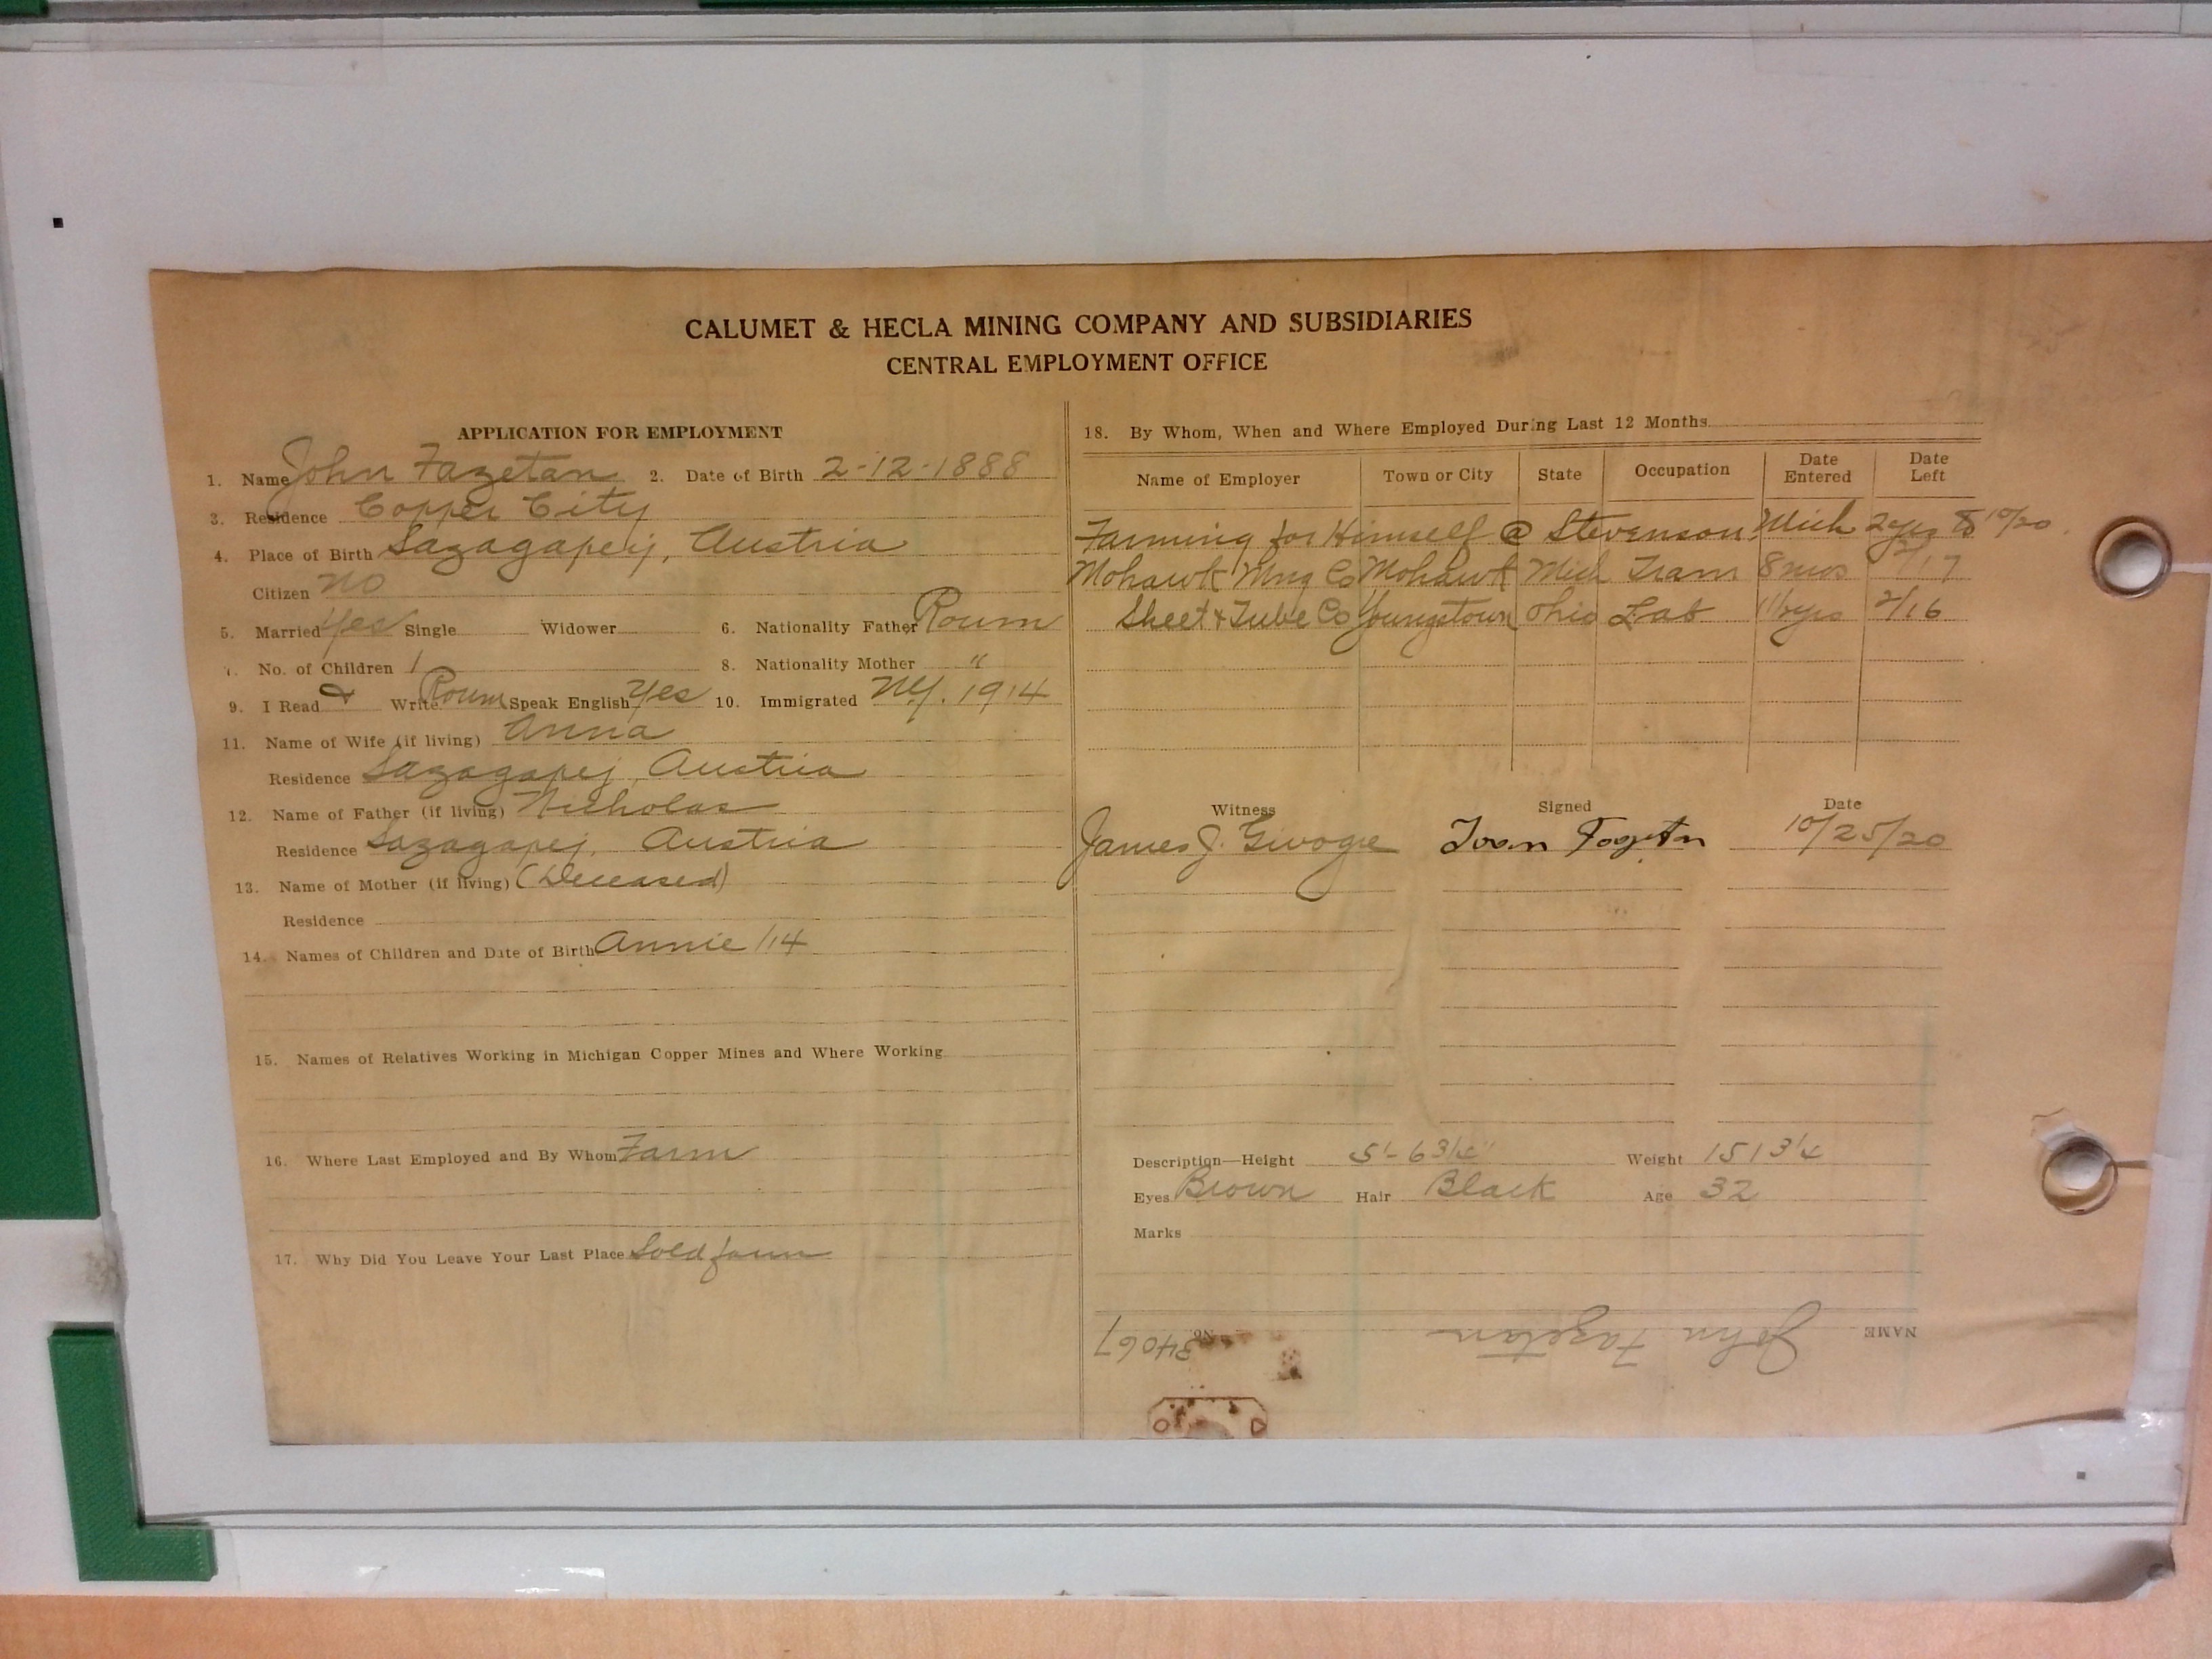 CALUMET & HECLA MINING COMPANY AND SUBSIDIARIES
CENTRAL EMPLOYMENT OFFICE
APPLICATION FOR EMPLOYMENT
1. Name John Fazetan 2. Date of Birth 2-12-1888
3. Residence Copper City
4. Place of Birth Sazagapeij, Austria
Citizen no
5. Married yes Single Widower 6. Nationality Father Roum
7. No. of Children 1 8. Nationality Mother "
9. I Read & Write Roum Speak English Yes 10. Immigrated NY. 1914
11. Name of Wife (if living) Anna
Residence Sazagapej, Austria
12. Name of Father (if living) Nicholas
Residence Sazagapej, Austria
13. Name of Mother (if living) (Deceased)
Residence
14. Names of Children and Date of Birth Annie /14
15. Names of Relatives Working in Michigan Copper Mines and Where Working
16. Where Last Employed and By Whom Farm
17. Why Did You Leave Your Last Place Sold farm
18. By Whom, When and Where Employed During Last 12 Months
Name of Employer Town or City State Occupation Date Entered Date Left
Farming for Himself @ Stevenson, Mich 2 yrs to 10/20
Mohawk Mng Co Mohawk Mich Tram 8 mos /17
Sheet & Tube Co Youngstown Ohio Lab 1 1/2 yrs 2/16
Witness Signed Date
James J. Ioan 10/25/20
Description—Height 5'-6 3/4" Weight 151 3/4
Eyes Brown Hair Black Age 32
Marks
NAME John Fazetan No. 34067